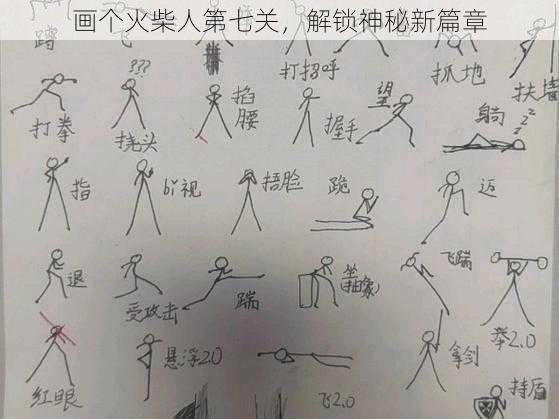 画个火柴人第七关，解锁神秘新篇章
蹲
飞
打招呼
抓地
扶墙
???
打拳
挠头
掐腰
握手
望
躺
zzz
指
bi视
捂脸
跪
迈
退
受攻击
踹
坐
(抽象)
飞踹
举2.0
红眼
悬浮2.0
飞2.0
拿剑
持盾